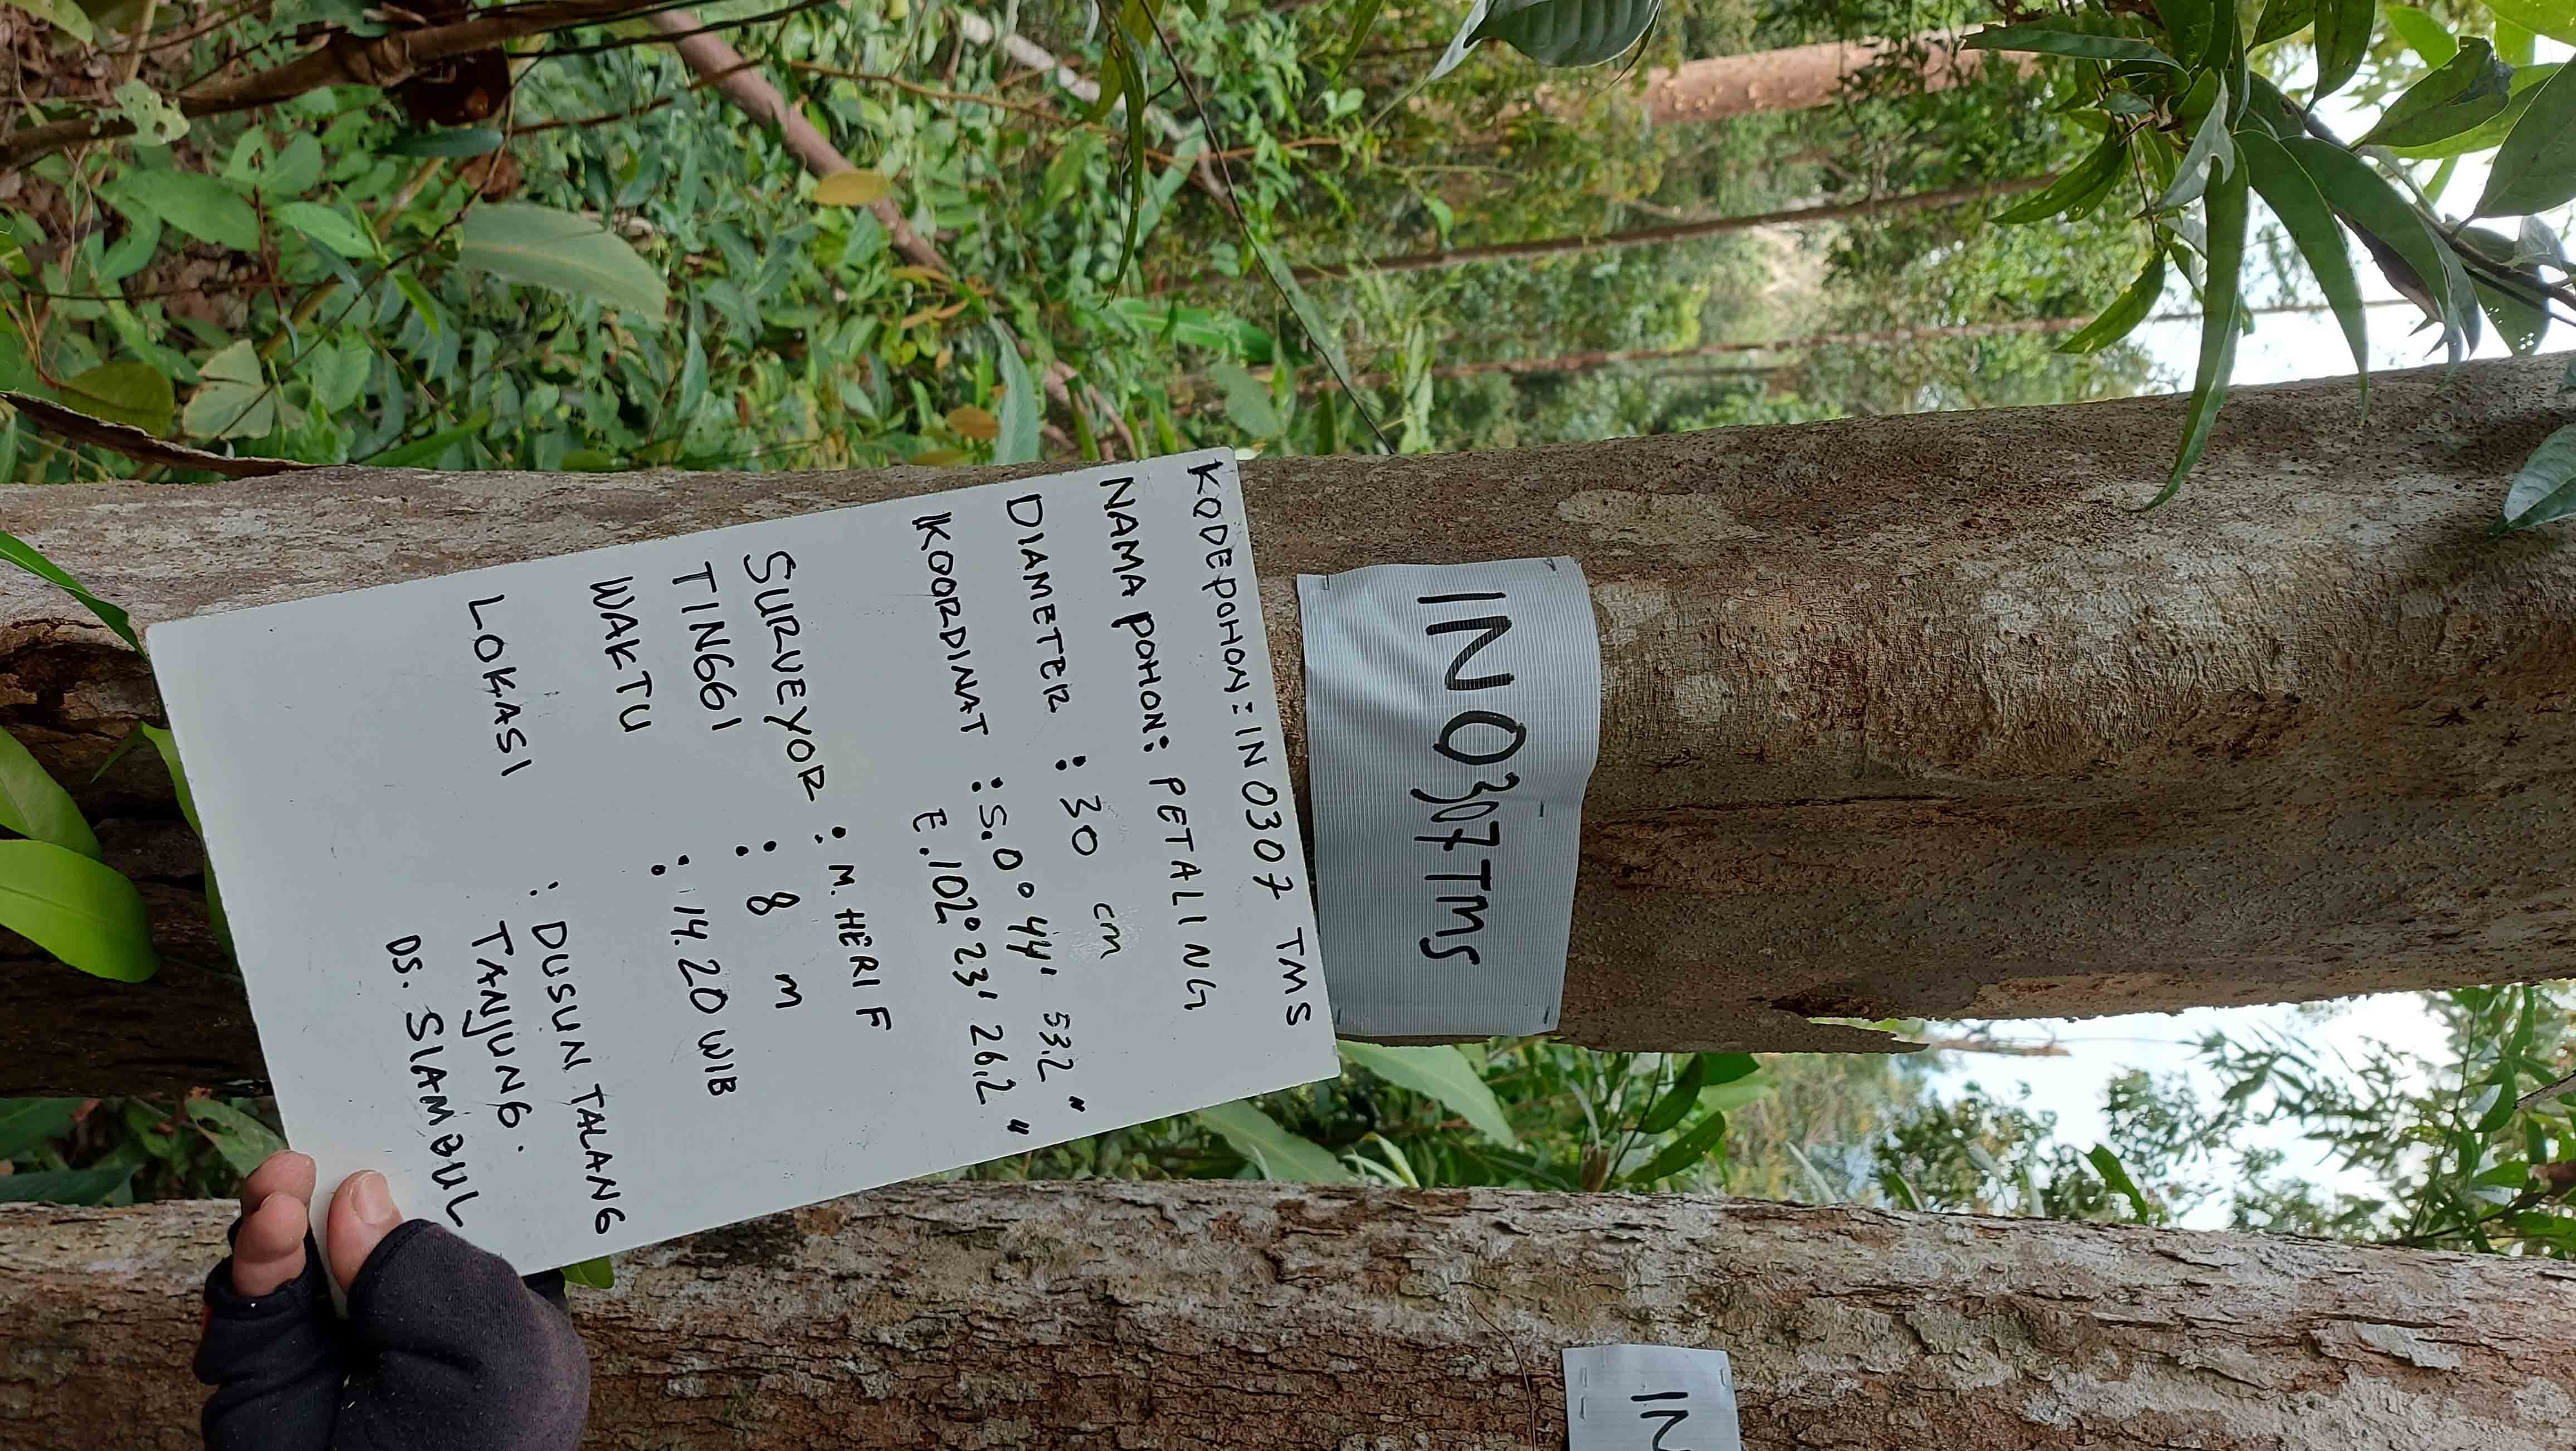 IN0307TMS
IN
KODE POHON : IN 0307 TMS
NAMA POHON : PETALING
DIAMETER : 30 cm
KOORDINAT : S.0° 44' 53.2"
E.102° 23' 26,2"
SURVEYOR : M. HERI F
TINGGI : 8 m
WAKTU : 14.20 WIB
LOKASI : DUSUN TALANG
TANJUNG.
DS. SIAMBUL